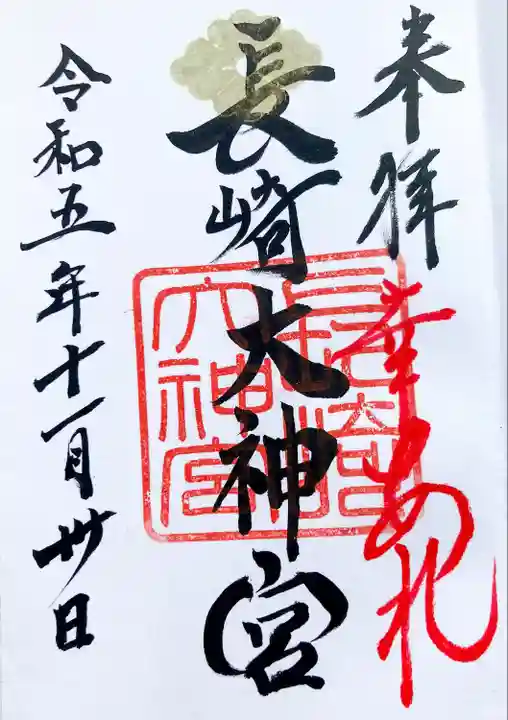 奉拝
幸あれ
長崎大神宮
長崎大神宮
令和五年十一月卅日